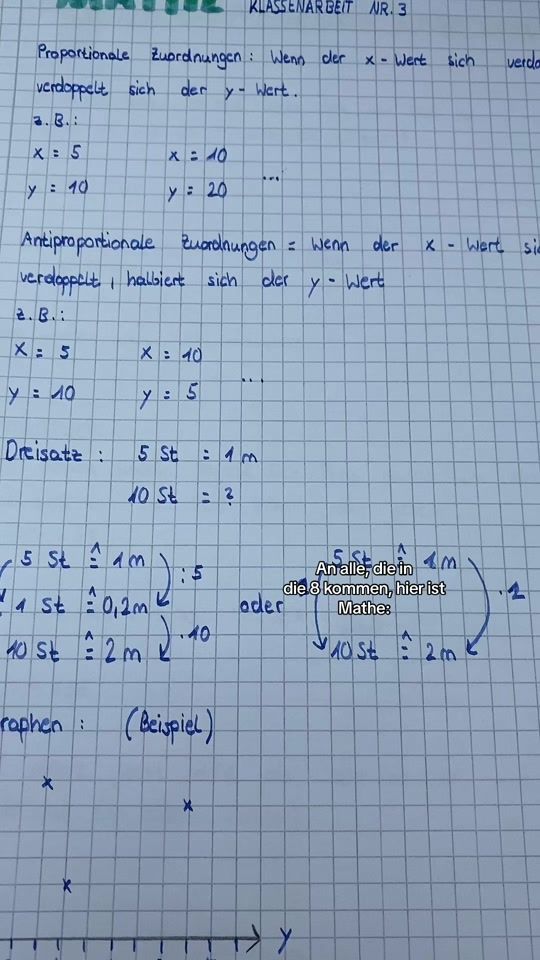 MATHE KLASSENARBEIT NR. 3
Proportionale Zuordnungen: Wenn der x-Wert sich
verdoppelt sich der y-Wert.
z.B.:
x = 5 x = 10
y = 10 y = 20 ...
Antiproportionale Zuordnungen = Wenn der x-Wert
verdoppelt, halbiert sich der y-Wert
z.B.:
x = 5 x = 10
y = 10 y = 5 ...
Dreisatz: 5 St = 1 m
10 St = ?
5 St ≙ 1 m :5 5 St ≙ 1 m
An alle, die in
die 8 kommen, hier ist
Mathe:
1 St ≙ 0,2 m oder
10 St ≙ 2 m ·10 10 St ≙ 2 m
raphen: (Beispiel)
x
x
x
y